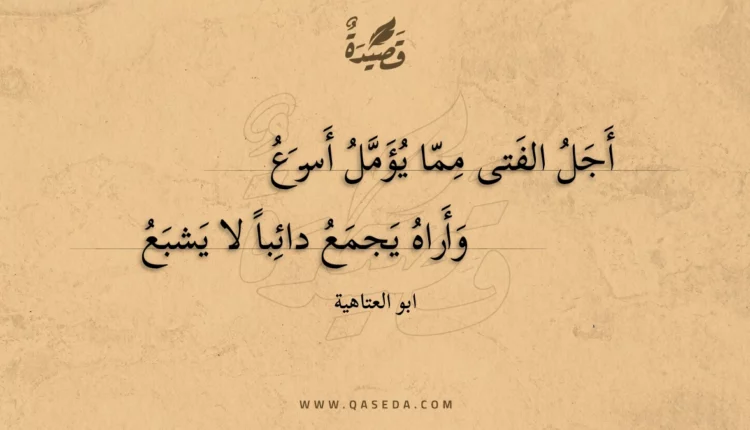 قَصِيْدَةٌ
أَجَلُ الفَتى مِمّا يُؤَمَّلُ أَسرَعُ
وَأَراهُ يَجمَعُ دائِباً لا يَشبَعُ
ابو العتاهية
WWW.QASEDA.COM